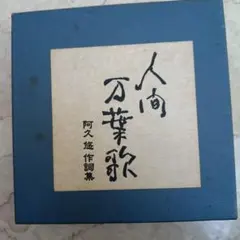 人間
万葉歌
阿久悠作詞集